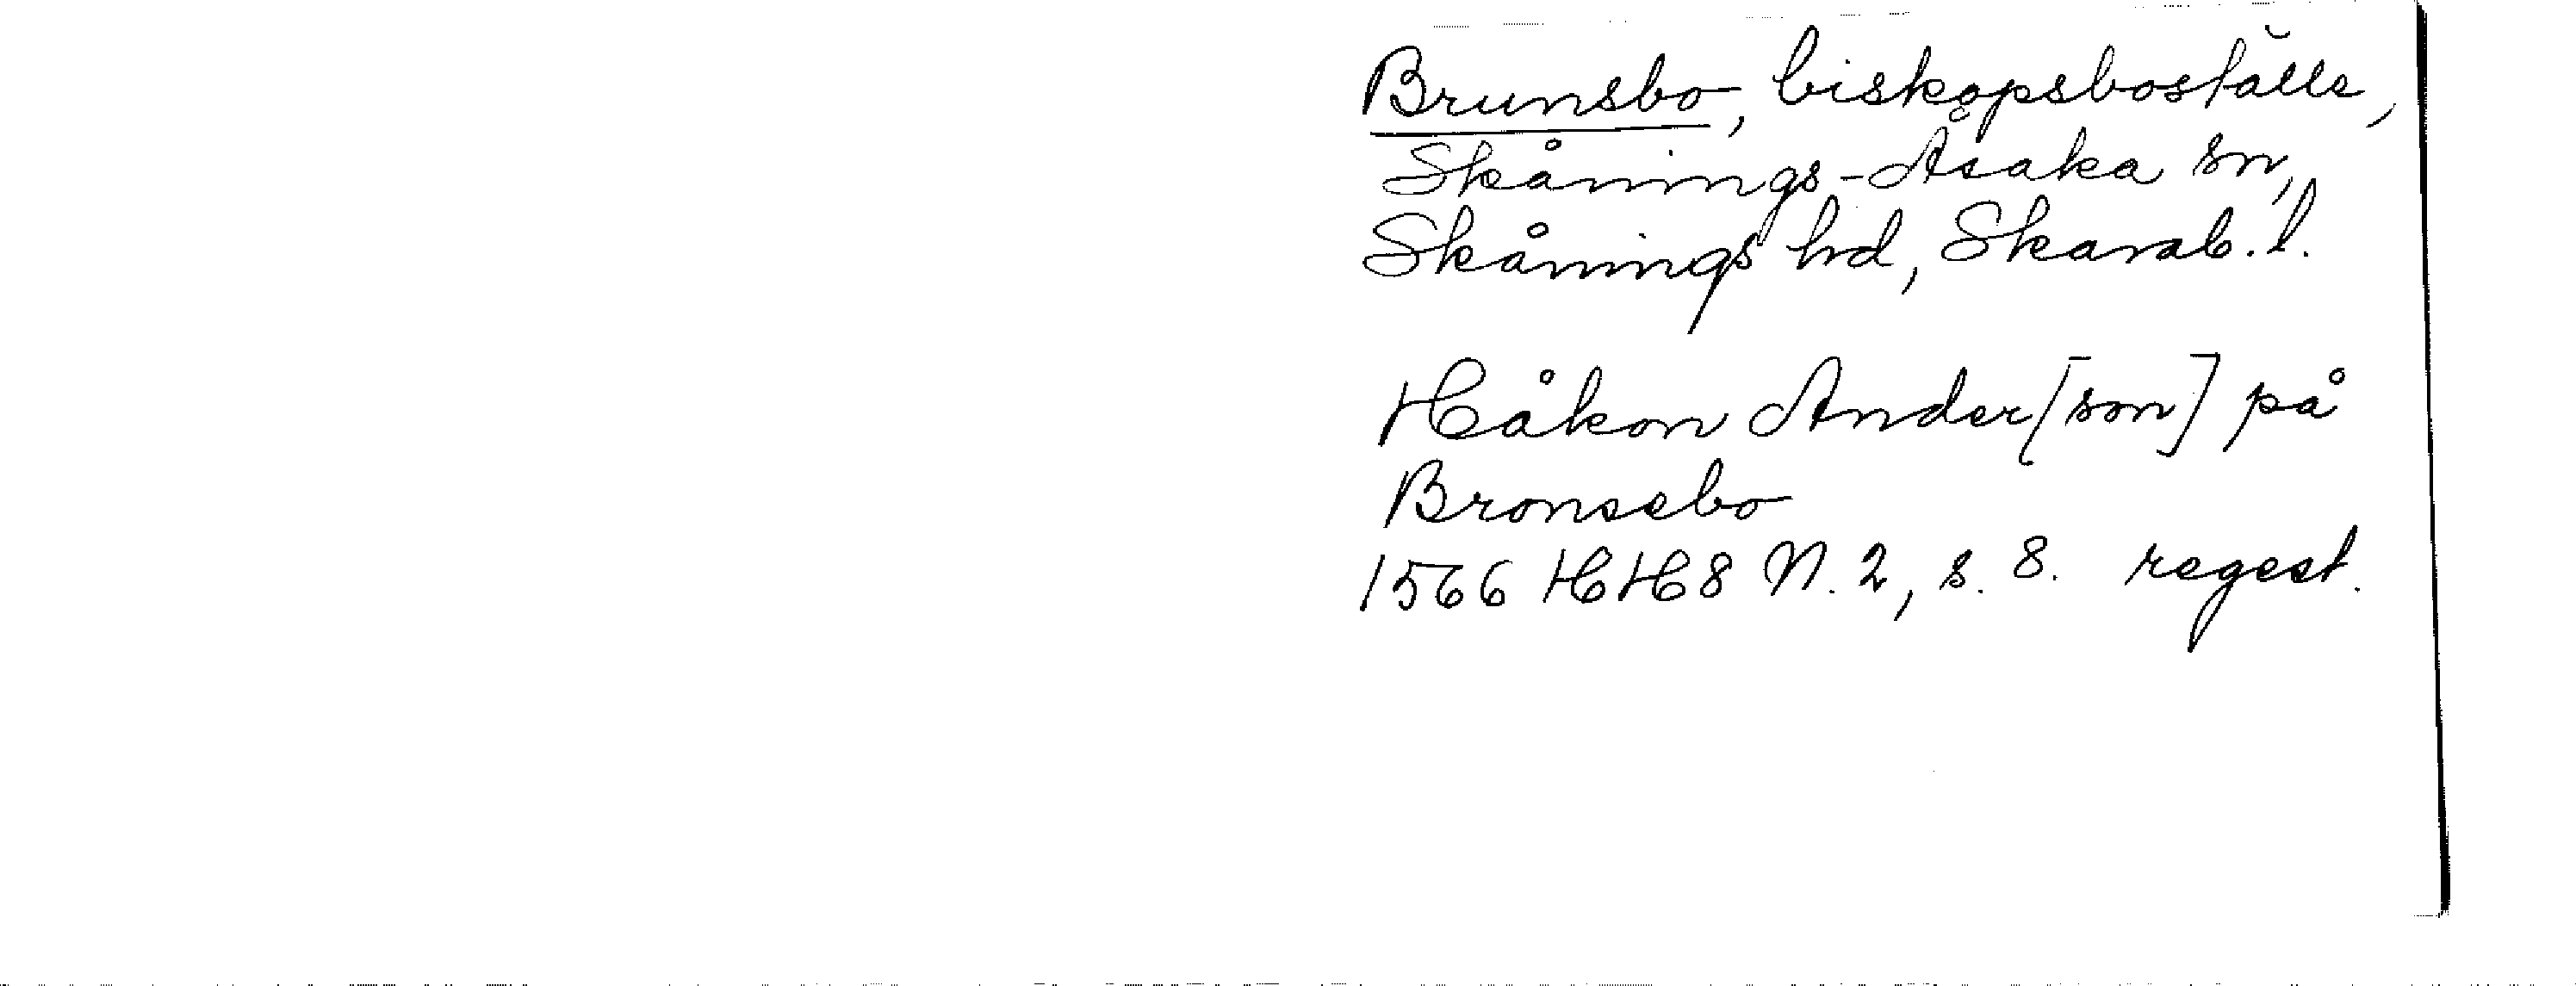 Brunsbo, biskopsboställe,
Skånings-Åsaka sn,
Skånings hd, Skarab. l.
Håkon Ander[son] på
Bronsebo
1566 HH8 N. 2, s. 8. regest.